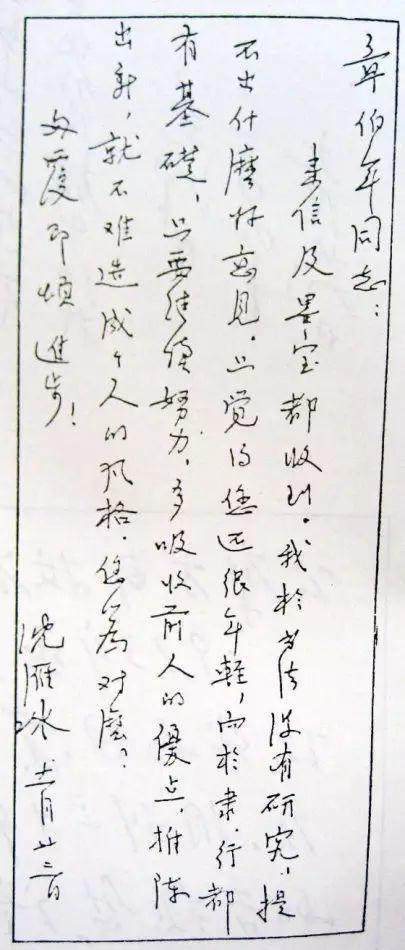 章伯年同志：
来信及墨宝都收到。我於书法没有研究，提
不出什麽好意见。只觉得您还很年軽，而於隶、行都
有基礎，只要继续努力，多吸收前人的優点，推陈
出新，就不难造成个人的风格。您以为对麽？
匆覆即颂 進步！
沈雁冰 十一月廿三日